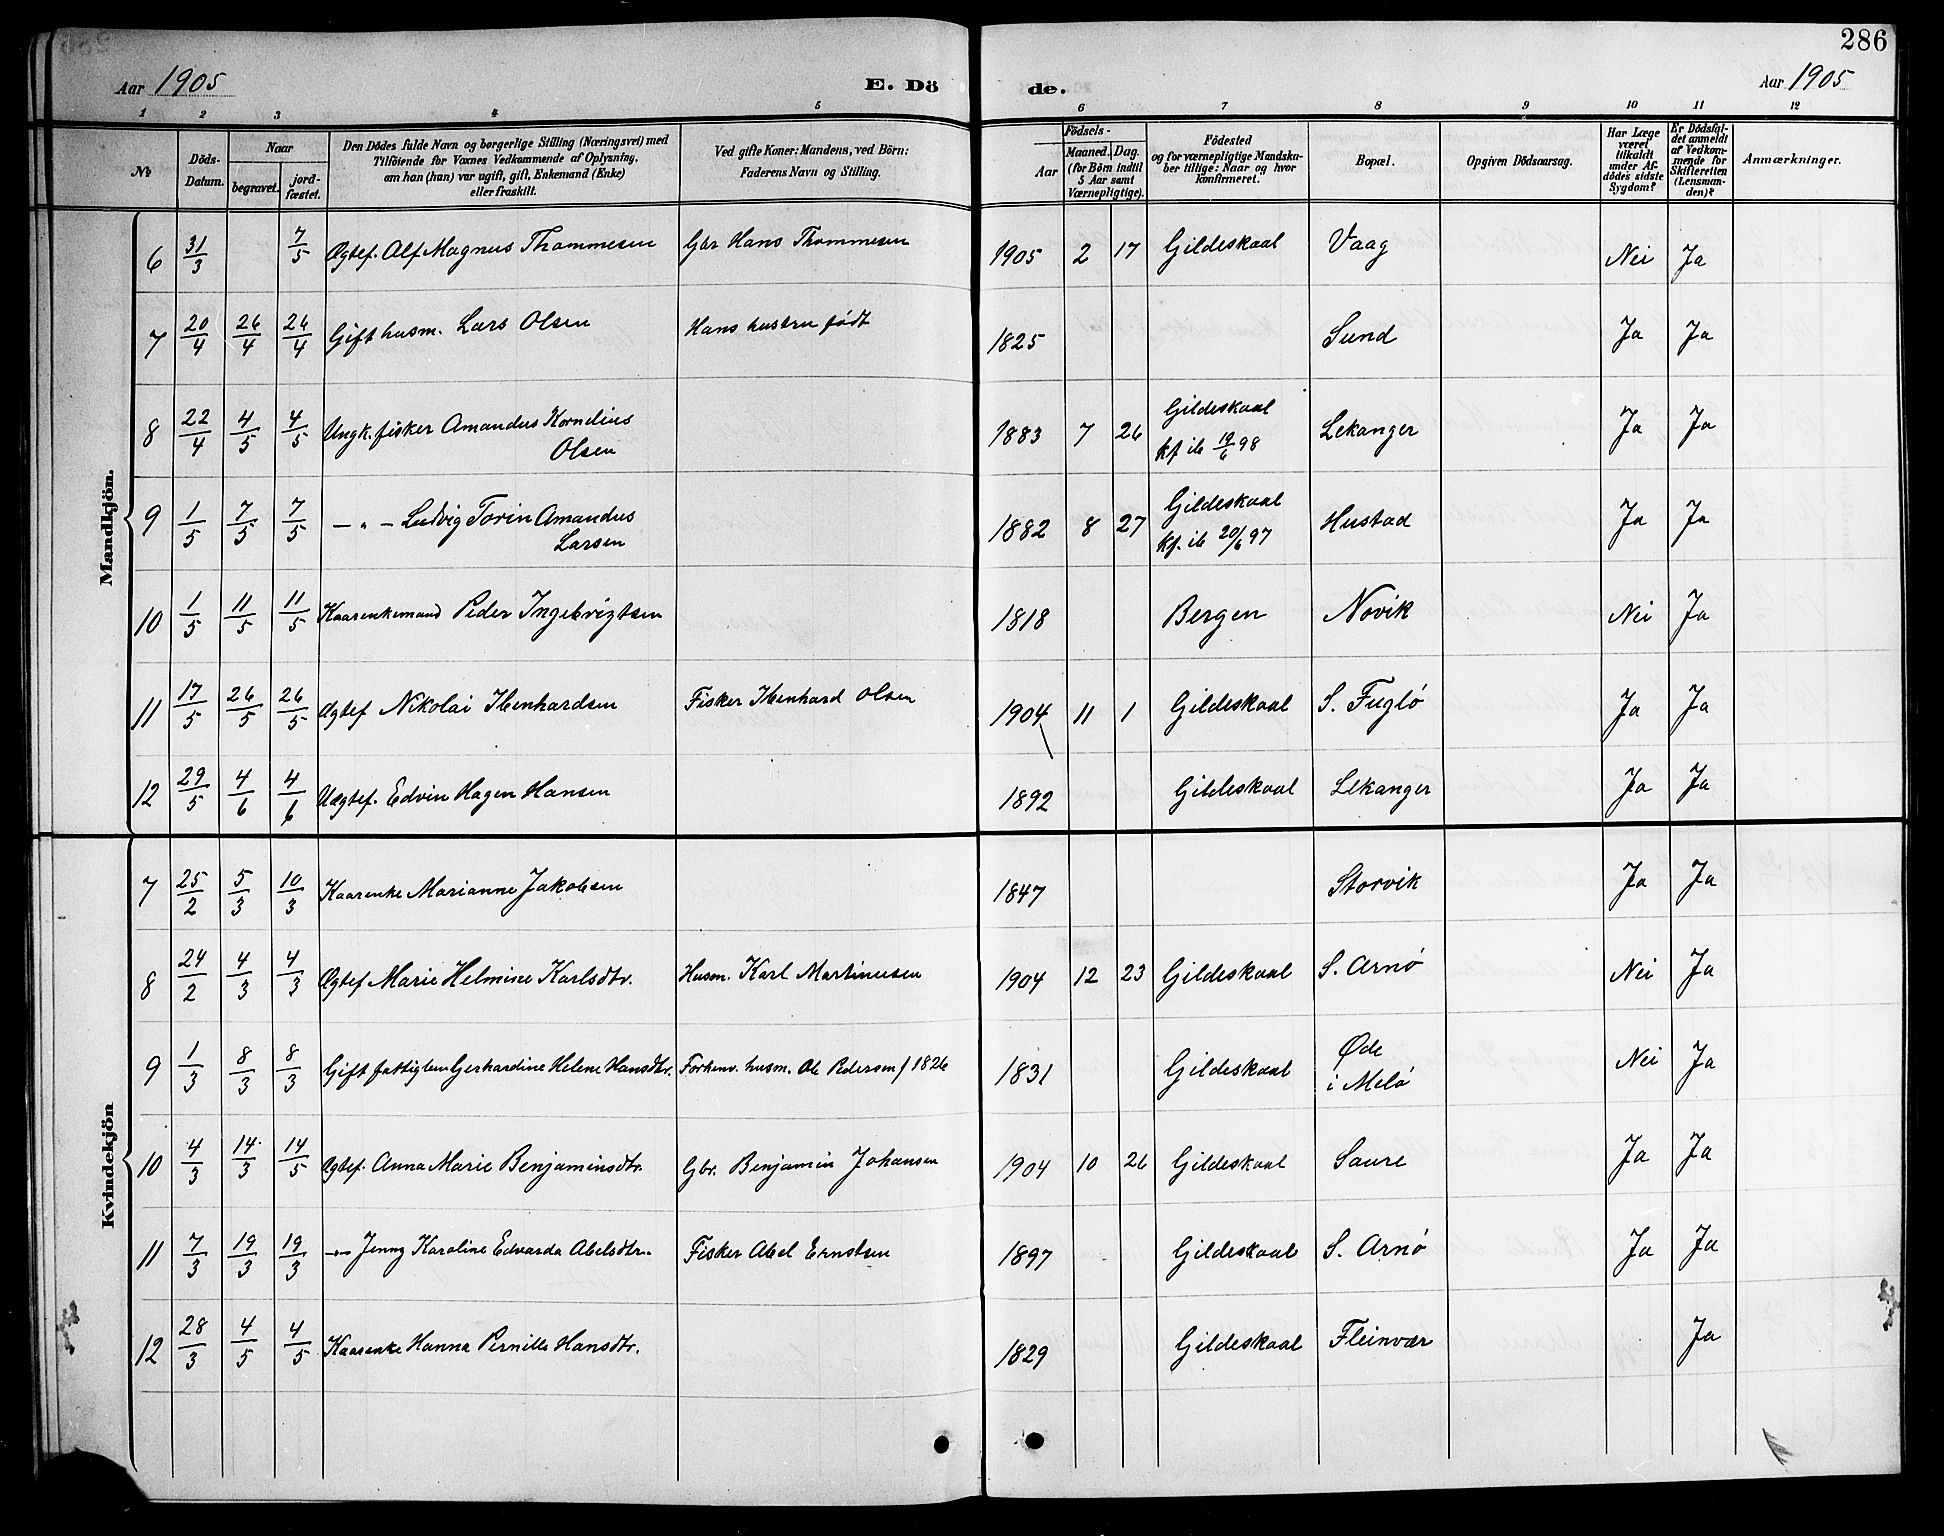 286
Aar 1905 E. Dö de. Aar 1905
1 2 3 4 5 6 7 8 9 10 11 12
№
Döds-Datum.
Naar
begravet.
jord-fæstet.
Den Dödes fulde Navn og borgerlige Stilling (Næringsvei) med
Tilföiende for Voxnes Vedkommende af Oplysning,
om han (hun) var ugift, gift, Enkemand (Enke)
eller fraskilt.
Ved gifte Koner: Mandens, ved Börn:
Faderens Navn og Stilling.
Födsels-
Aar
Maaned. Dag.
(for Börn indtil
5 Aar samt
Værnepligtige).
Födested
og for værnepligtige Mandska-
ber tillige: Naar og hvor
konfirmeret.
Bopæl.
Opgiven Dödsaarsag.
Har Læge
været
tilkaldt
under Af-
dödes sidste
Sygdom?
Er Dödsfal-
det anmeldt
af Vedkom-
mende for
Skifteretten
(Lensman-
den)?
Anmærkninger.
Mandkjön.
6 31/3 7/5 Ægtef. Alf Magnus Thommesen Gbr Hans Thommesen 1905 2 17 Gildeskaal Vaag Nei Ja
7 20/4 26/4 26/4 Gift husm. Lars Olsen Hans hustru født 1825 Sund Ja Ja
8 22/4 4/5 4/5 Ungk. fisker Amandus Kornelius 1883 7 26 Gildeskaal Lekanger Ja Ja
Olsen kf ib 19/6 98
9 1/5 7/5 7/5 — " — Ludvig Torin Amandus 1882 8 27 Gildeskaal Hustad Ja Ja
Larsen kf. ib 20/6 97
10 1/5 11/5 11/5 Kaarenkemand Peder Ingebrigtsen 1818 Bergen Novik Nei Ja
11 17/5 26/5 26/5 Ægtef Nikolai Ibenhardsen Fisker Ibenhard Olsen 1904 11 1 Gildeskaal S. Fuglø Ja Ja
12 29/5 4/6 4/6 Uægtef. Edvin Hagen Hansen 1892 Gildeskaal Lekanger Ja Ja
Kvindekjön
7 25/2 5/3 10/3 Kaarenke Marianne Jakobsen 1847 Storvik Ja Ja
8 24/2 4/3 4/3 Ægtef Marie Helmine Karlsdtr. Husm. Karl Martinusen 1904 12 23 Gildeskaal S. Arnø Nei Ja
9 1/3 8/3 8/3 Gift fattiglem Gerhardine Helene Hansdtr. Forhenv. husm. Ole Pedersen f 1826 1831 Gildeskaal Øde Nei Ja
i Melø
10 4/3 14/3 14/5 Ægtef. Anna Marie Benjaminsdtr. Gbr. Benjamin Johansen 1904 10 26 Gildeskaal Saure Ja Ja
11 7/3 19/3 19/3 — " — Jenny Karoline Edvarda Abelsdtr. Fisker Abel Ernstsen 1897 Gildeskaal S. Arnø Ja Ja
12 28/3 4/5 4/5 Kaarenke Hanna Pernille Hansdtr. 1829 Gildeskaal Fleinvær Ja